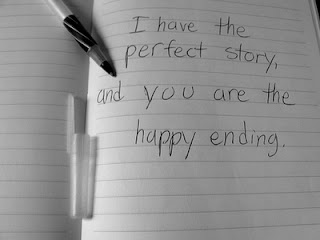 I have the
perfect story,
and you are the
happy ending.